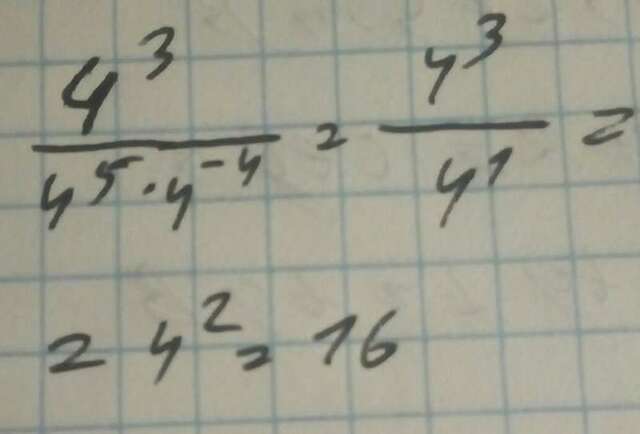 4³ / 4⁵ · 4⁻⁴ = 4³ / 4¹ =
= 4² = 16